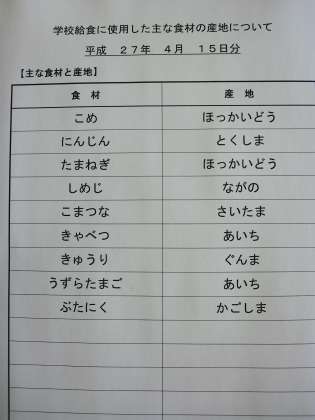 学校給食に使用した主な食材の産地について
平成 27年 4月 15日分
【主な食材と産地】
食 材 産 地
こめ ほっかいどう
にんじん とくしま
たまねぎ ほっかいどう
しめじ ながの
こまつな さいたま
きゃべつ あいち
きゅうり ぐんま
うずらたまご あいち
ぶたにく かごしま